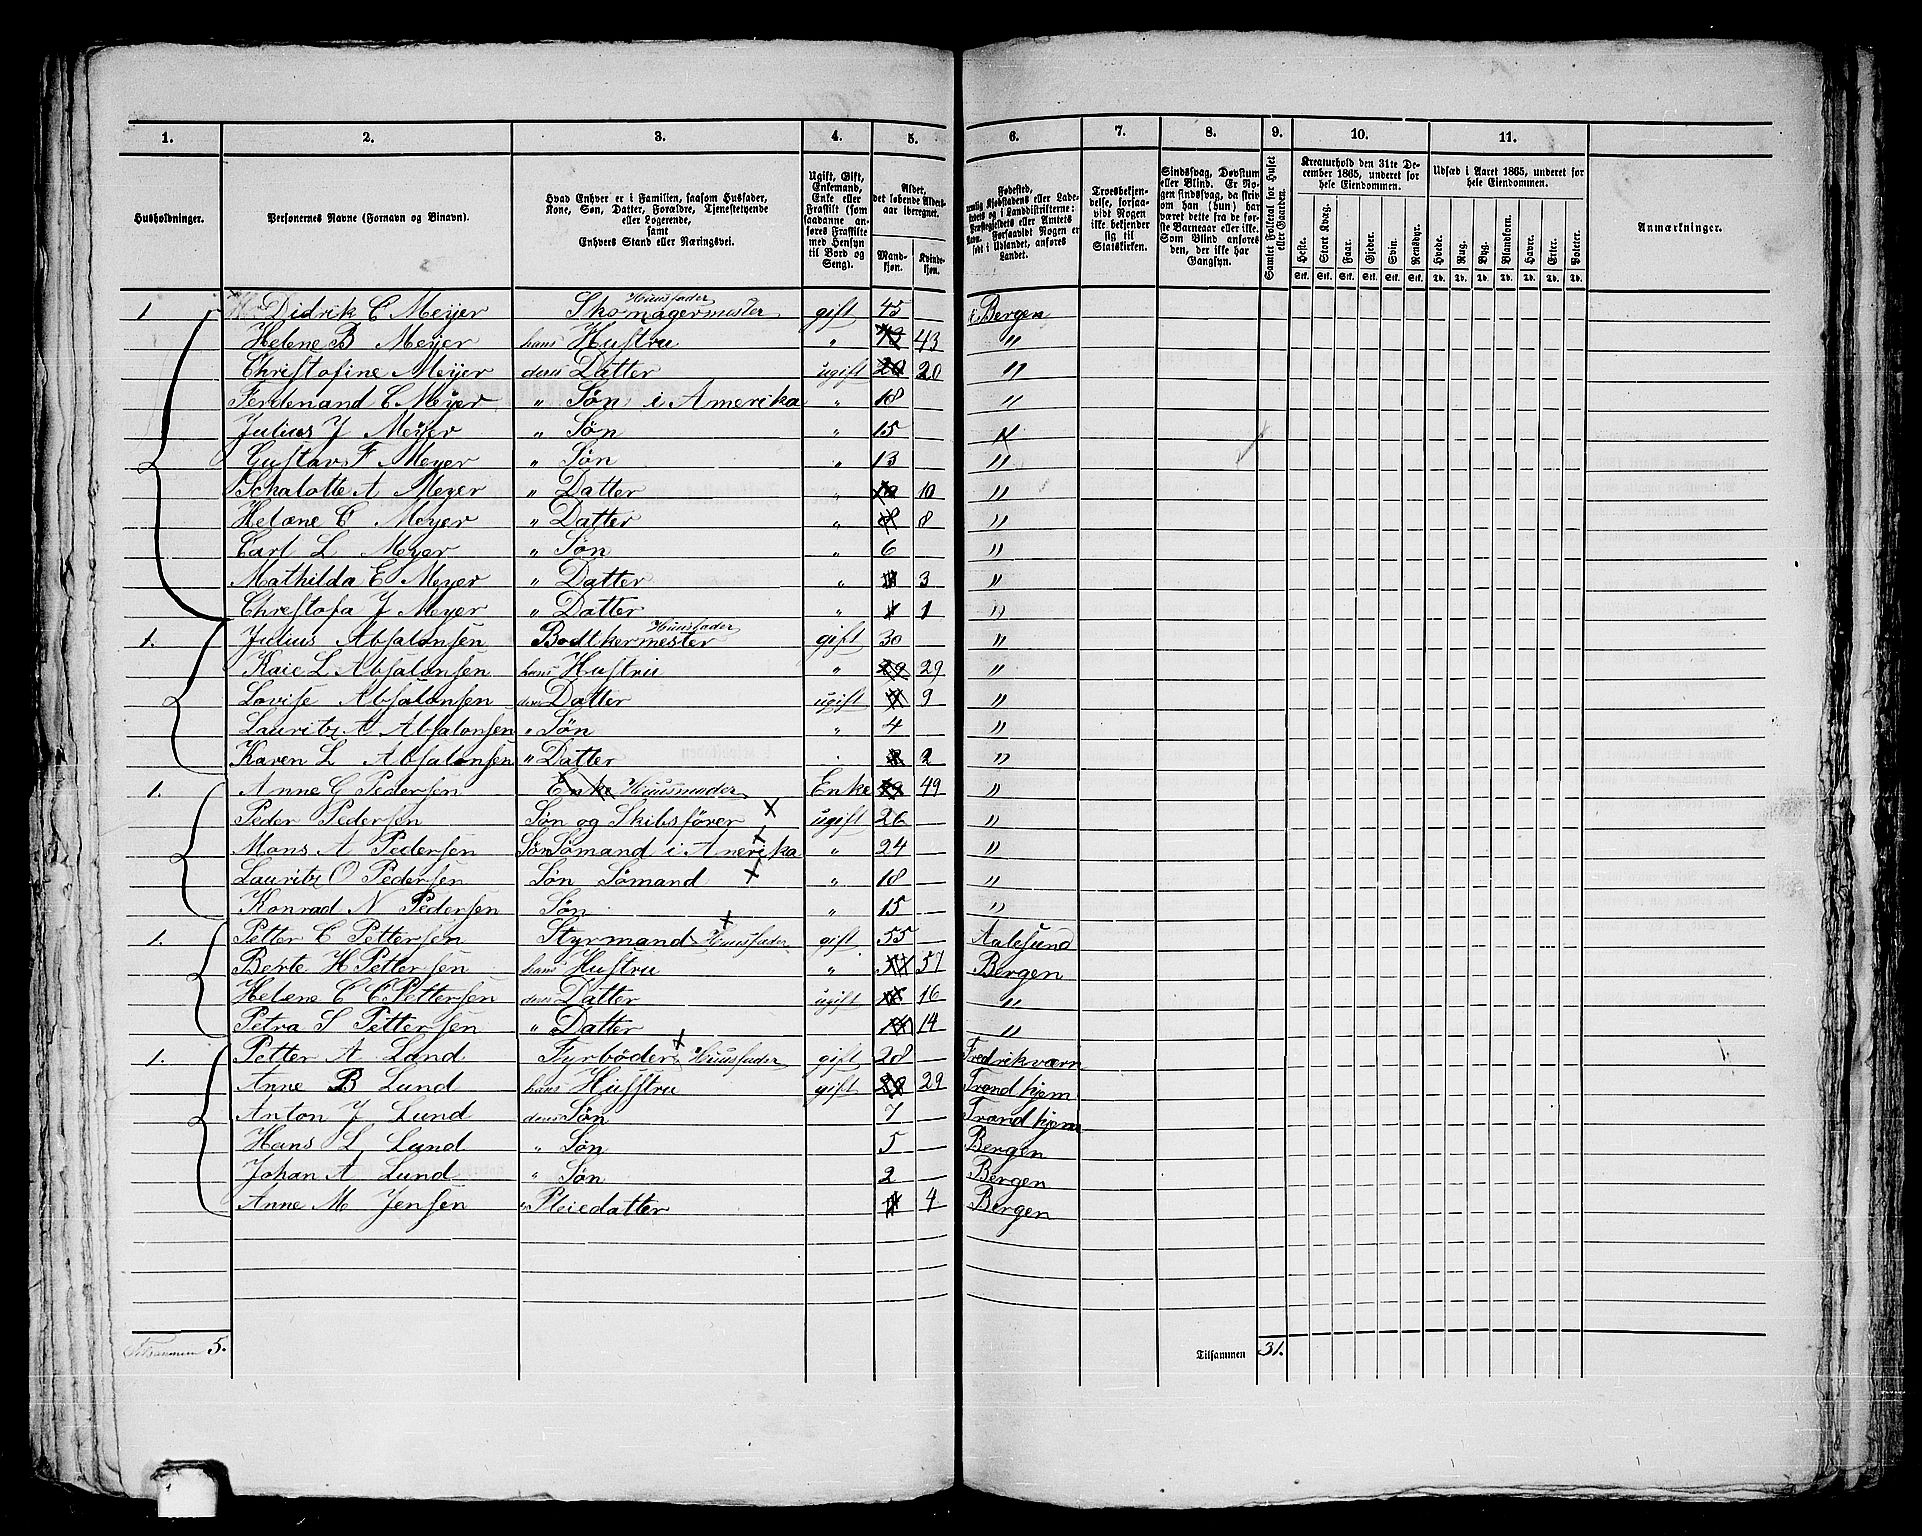 1. 2. 3. 4. 5. 6. 7. 8. 9. 10. 11.
Husholdninger.
Personernes Navne (Fornavn og Binavn).
Hvad Enhver er i Familien, saasom Husfader,
Kone, Søn, Datter, Forældre, Tjenestetyende
eller Logerende,
samt
Enhvers Stand eller Næringsvei.
Ugift, Gift,
Enkemand,
Enke eller
Fraskilt (som
saadanne an-
føres Fraskilte
med Hensyn
til Bord og
Seng).
Alder,
det løbende Alders-
aar iberegnet.
Mand-
kjøn.
Kvinde-
kjøn.
Fødested,
nemlig Kjøbstadens eller Lade-
stedets og i Landdistrikterne:
Præstegjeldets eller Amtets
Navn. Forsaavidt Nogen er
født i Udlandet, anføres
Landet.
Troesbekjen-
delse, forsaa-
vidt Nogen
ikke bekjender
sig til
Statskirken.
Sindssvag, Døvstum
eller Blind. Er No-
gen sindssvag, da skriv
om han (hun) har
været dette fra de før-
ste Barneaar eller ikke.
Som Blind anføres
den, der ikke har
Gangsyn.
Samlet Folketal for Huset
eller Gaarden.
Kreaturhold den 31te De-
cember 1865, underet for
hele Eiendommen.
Heste. Stort Kvæg. Faar. Gjeder. Svin. Rensdyr.
Stk. Stk. Stk. Stk. Stk. Stk.
Udsæd i Aaret 1865, underet for
hele Eiendommen.
Hvede. Rug. Byg. Blandkorn. Havre. Erter. Poteter.
Td. Td. Td. Td. Td. Td. Td.
Anmærkninger.
1 Didrik C Meyer Skomagermester Huusfader gift 45 Bergen
Helene B Meyer hans Hustru " 43 43 "
Christofine Meyer deres Datter ugift 20 20 "
Ferdenand C Meyer " Søn i Amerika " 18 "
Julius J Meyer " Søn " 15 "
Gustav F Meyer " Søn " 13 "
Schalotte A Meyer " Datter " 10 10 "
Helene C Meyer " Datter " 8 8 "
Carl L Meyer " Søn " 6 "
Mathilda E Meyer " Datter " 3 "
Chrestofa J Meyer " Datter " 1 1 "
1. Julius Absalonsen Bodtkermester Huusfader gift 30 "
Kaie L Absalonsen hans Hustru " 29 29 "
Lovise Absalonsen deres Datter ugift 9 "
Lauritz A Absalonsen " Søn " 4 "
Karen L Absalonsen " Datter 2 2 "
1. Anne G Pedersen Enke Huusmoder Enke 49 49 "
Peder Pedersen Søn og Skibsfører x ugift 26 "
Mons A Pedersen Søn Sömand i Amerika x " 24 "
Lauritz O Pedersen Søn Sömand x " 18 "
Konrad N Pedersen Søn " 15 "
1. Petter C Pettersen Styrmand x Huusfader gift 55 Aalesund
Berte H Pettersen hans Hustru " 57 Bergen
Helene C C Pettersen deres Datter ugift 16 "
Petra S Pettersen " Datter 14 14 "
1. Petter A Lund Fyrböder x Huusfader gift 28 Fredrikværn
Anne B Lund hans Husstru gift 29 29 Trondhjem
Anton J Lund deres Søn 7 Trondhjem
Hans L Lund " Søn 5 Bergen
Johan A Lund " Søn 2 Bergen
Anne M Jensen " Pleiedatter 4 4 Bergen
Tilsammen 5. Tilsammen 31.